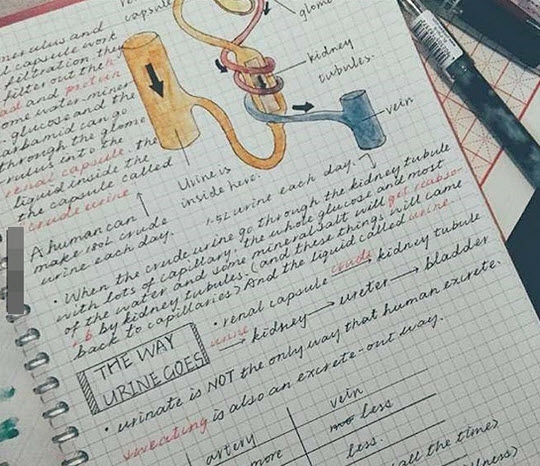 renal
capsule
glome
merulus and
l capsule work
filtration. they
filter out the
and protein
ome water, miner
glucose and the
arbamid can go
through the glome
rulus into the
renal capsule. the
liquid inside the
the capsule called
crude urine
kidney
tubules.
vein
Urine is
inside here.
A human can
make 180L crude
urine each day.
1.5L urine each day.
· When the crude urine go through the kidney tubule
with lots of capillary. the whole glucose and most
of the water and some mineral salt will get reabso-
r b by kidney tubules. (and these things will came
back to capillaries) And the liquid called urine.
THE WAY
URINE GOES
· renal capsule crude → kidney tubule
urine → kidney → ureter → bladder
· urinate is NOT the only way that human excrete.
sweating is also an excrete-out way.
artery vein
more less
less.
(all the time)